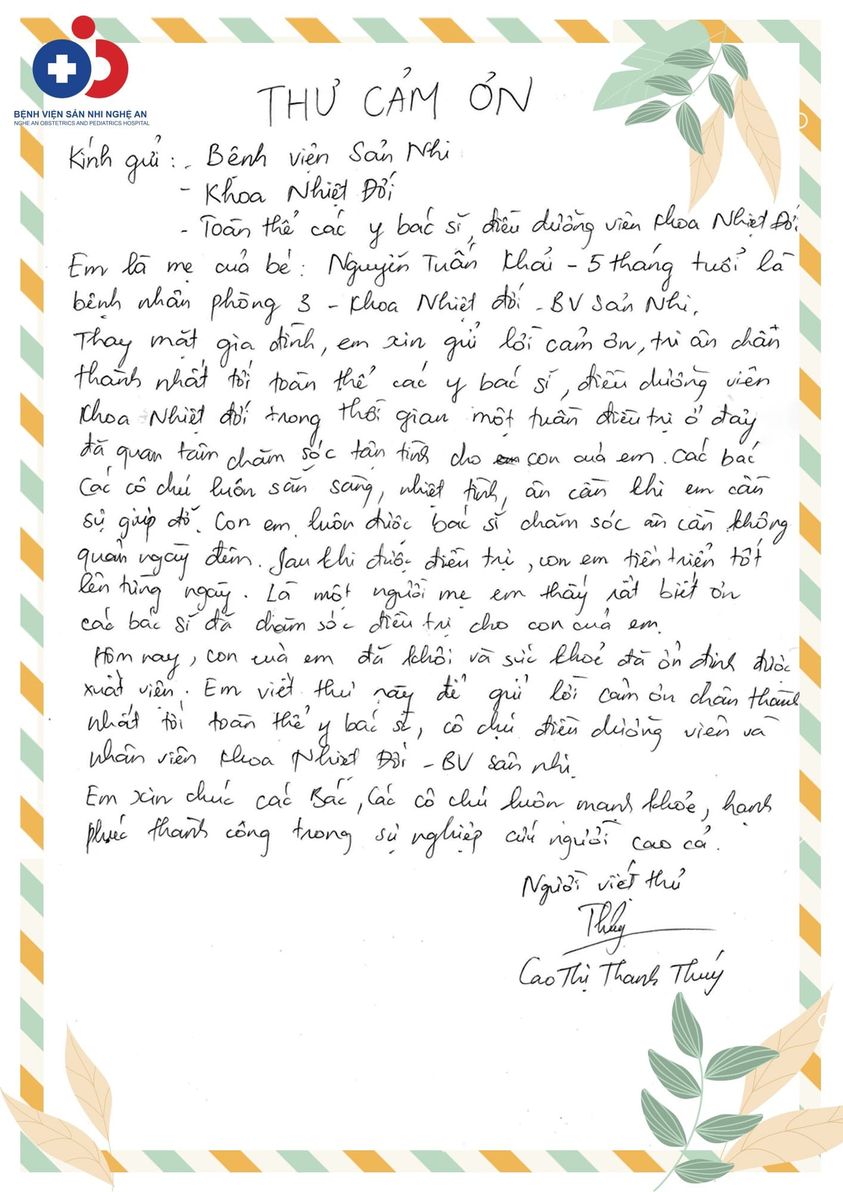 BỆNH VIỆN SẢN NHI NGHỆ AN
NGHE AN OBSTETRICS AND PEDIATRICS HOSPITAL
THƯ CẢM ƠN
Kính gửi : - Bệnh viện Sản Nhi
- Khoa Nhiệt Đới
- Toàn thể các y bác sĩ, điều dưỡng viên khoa Nhiệt Đới
Em là mẹ của bé : Nguyễn Tuấn Khải - 5 tháng tuổi là
bệnh nhân phòng 3 - Khoa Nhiệt đới - BV Sản Nhi.
Thay mặt gia đình, em xin gửi lời cảm ơn, tri ân chân
thành nhất tới toàn thể các y bác sĩ, điều dưỡng viên
Khoa Nhiệt đới trong thời gian một tuần điều trị ở đây
đã quan tâm chăm sóc tận tình cho con của em. Các bác
các cô chú luôn sẵn sàng, nhiệt tình, ân cần khi em cần
sự giúp đỡ. Con em luôn được bác sĩ chăm sóc ân cần không
quản ngày đêm. Sau khi được điều trị, con em tiến triển tốt
lên từng ngày. Là một người mẹ em thấy rất biết ơn
các bác sĩ đã chăm sóc điều trị cho con của em.
Hôm nay, con của em đã khỏi và sức khoẻ đã ổn định được
xuất viện. Em viết thư này để gửi lời cảm ơn chân thành
nhất tới toàn thể y bác sĩ, cô chú điều dưỡng viên và
nhân viên khoa Nhiệt Đới - BV sản nhi.
Em xin chúc các Bác, các cô chú luôn mạnh khỏe, hạnh
phúc thành công trong sự nghiệp cứu người cao cả.
Người viết thư
Thúy
Cao Thị Thanh Thúy